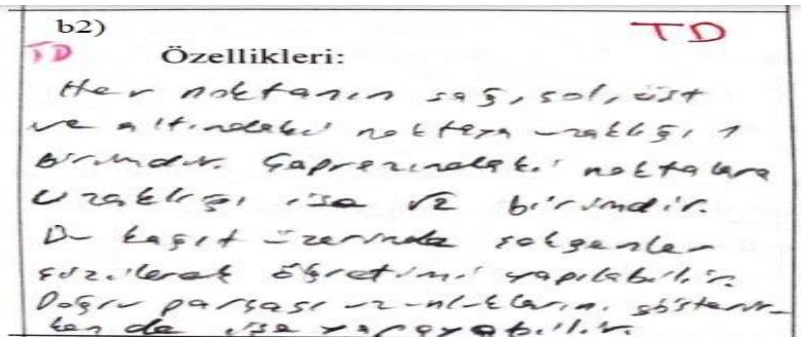 b2)
TD
TD
Özellikleri:
Her noktanın sağ, sol, üst
ve altındaki noktaya uzaklığı 1
birimdir. Çaprazındaki noktalara
uzaklığı ise √2 birimdir.
Bu kağıt üzerinde çokgenler
çizilerek öğretimi yapılabilir.
Doğru parçası uzunluklarını gösterir-
ken de işe yarayabilir.